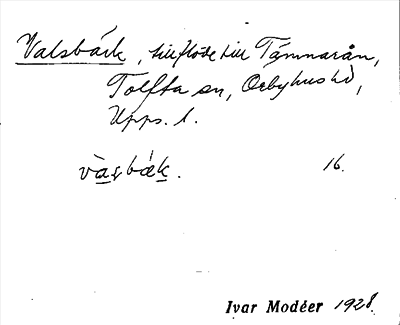 Valsbäck, tillflöde till Tämnarån,
Tolfta sn, Örbyhus hd,
Upps. l.
vàsbæk. 16.
Ivar Modéer 1928.